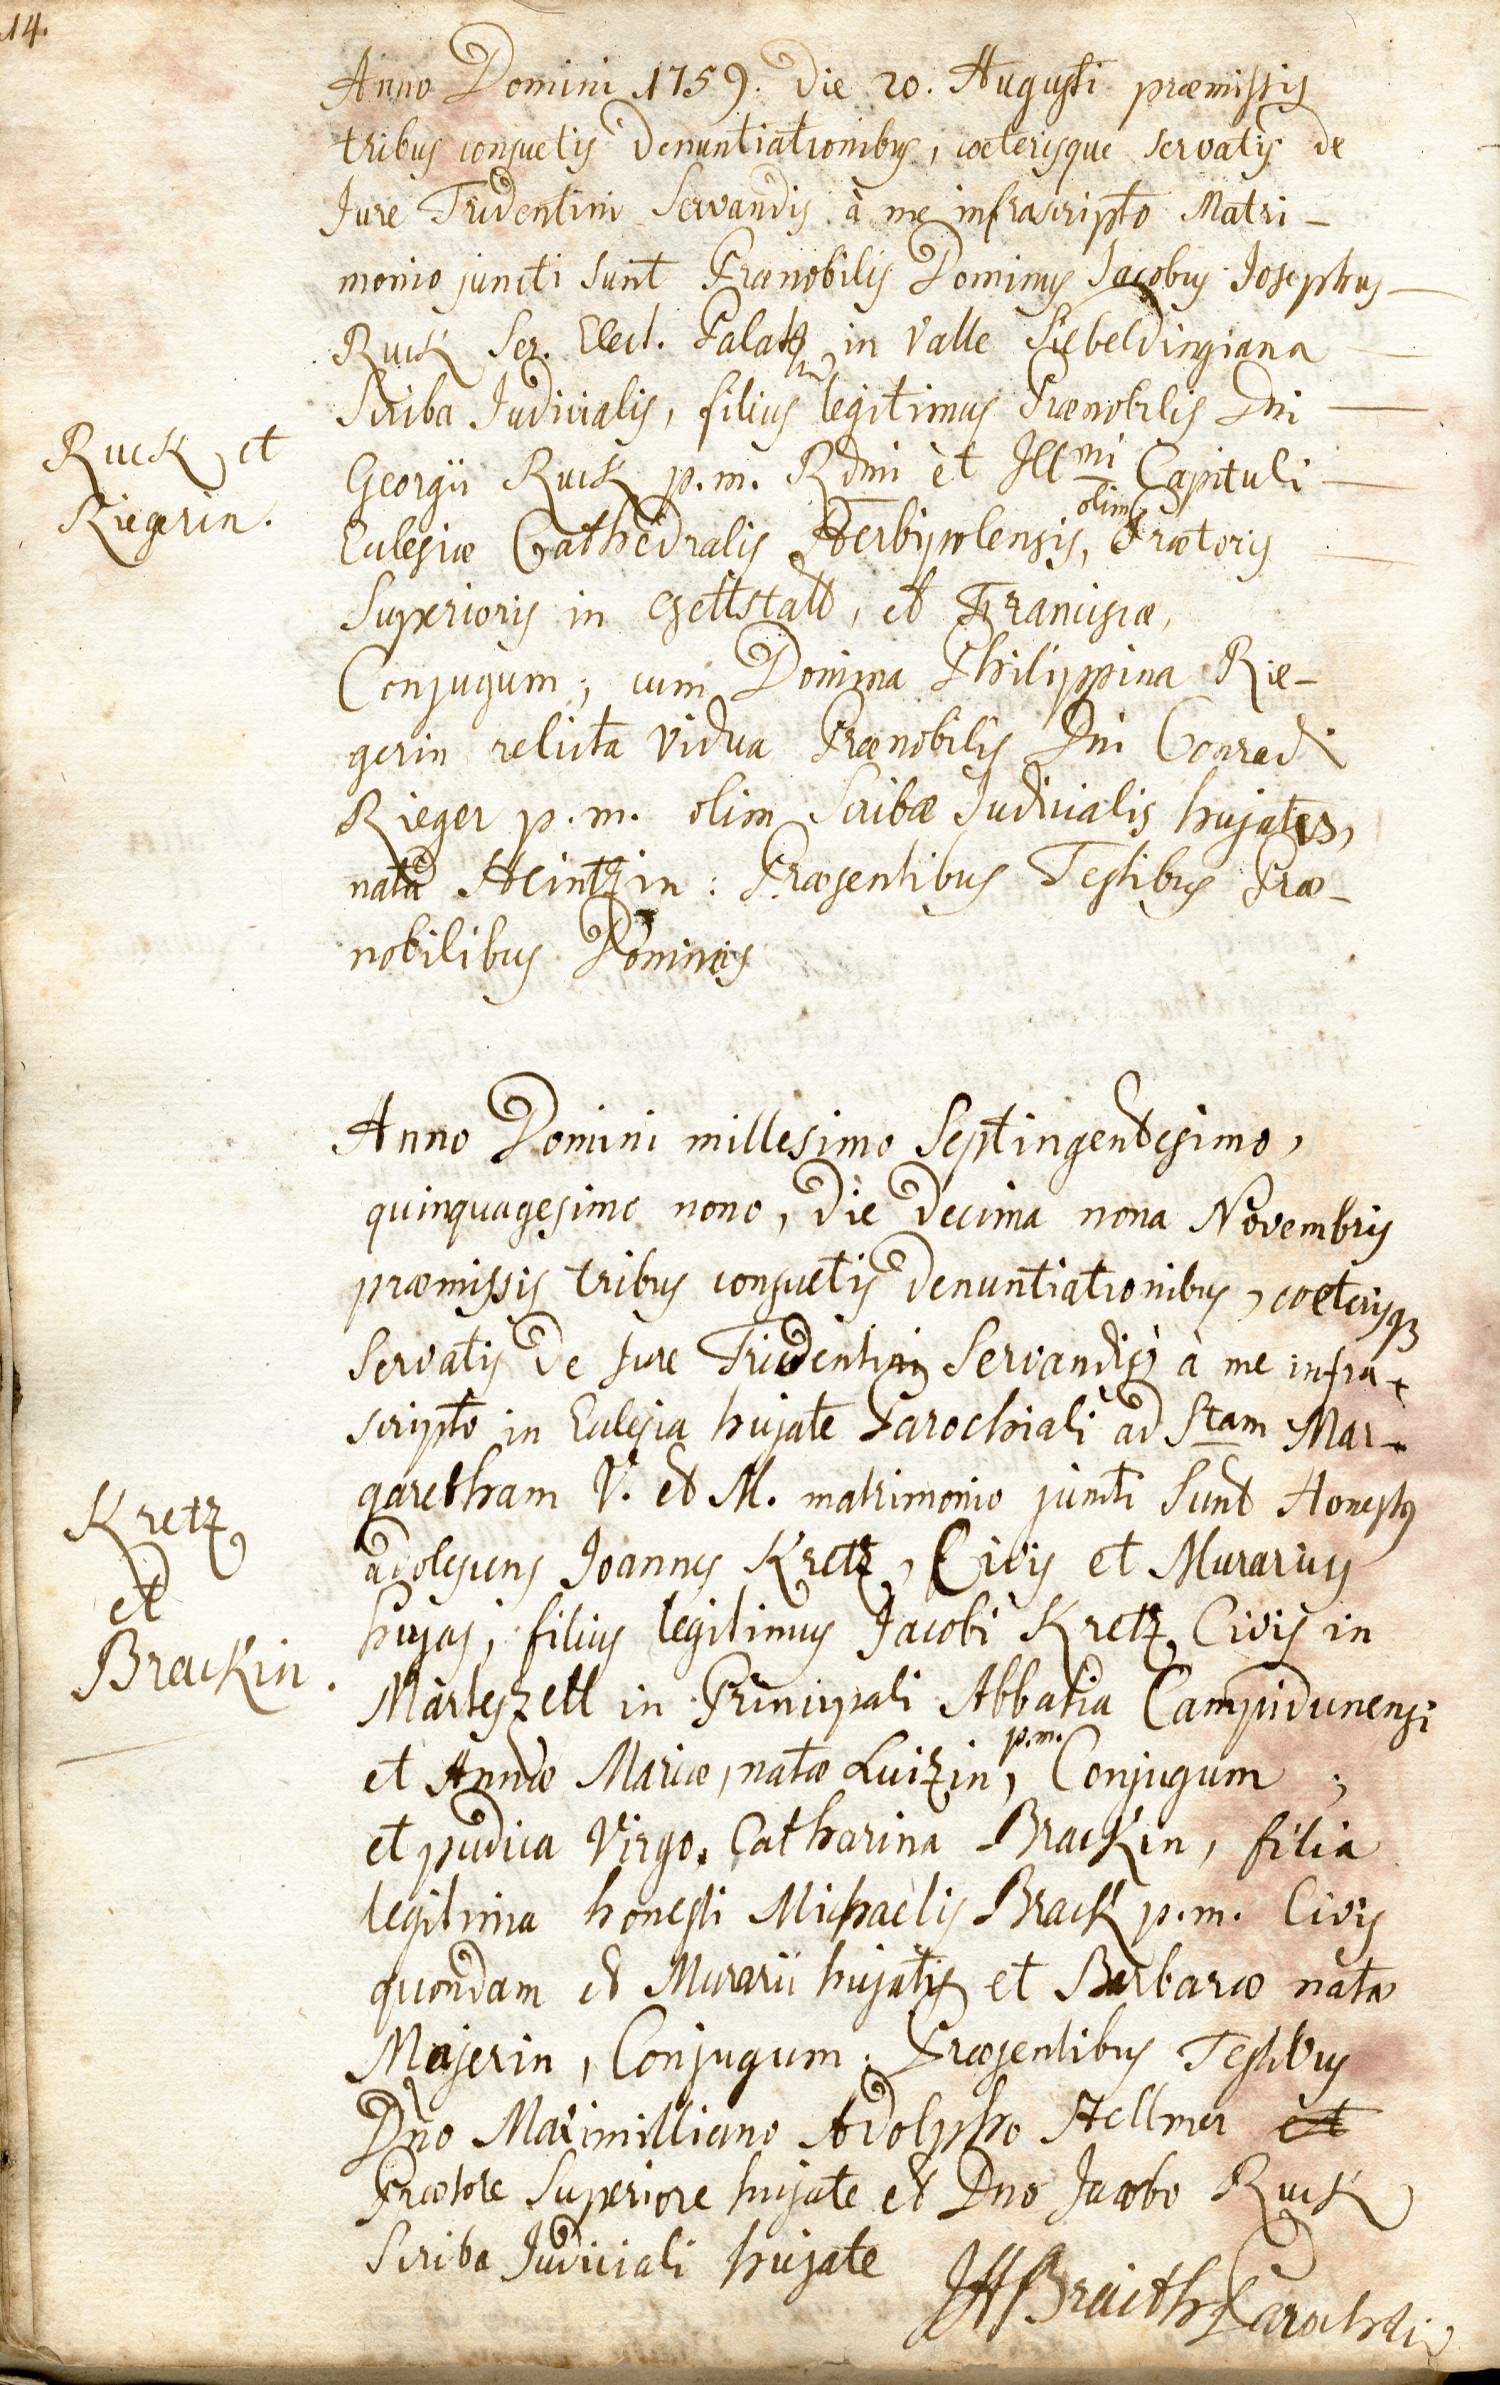 14.
Anno Domini 1759. die 20. Augusti præmissis
tribus consuetis denuntiationibus, cœterisque servatis de
Jure Tridentini Servandis à me infrascripto Matri-
monio juncti sunt Prænobilis Dominus Jacobus Josephus
Ruck Ser. Elect. Palat. in Valle Siebeldingiana
Scriba Judicialis, filius legitimus Prænobilis Dni
Ruck et
Riegerin.
Georgii Ruck p.m. Rdmi et Illmi Capituli
Eclesiæ Cathedralis Herbipolensis, olim Prætoris
Superioris in Gettstatt, et Franciscæ,
Conjugum, cum Domina Philippina Rie-
gerin relicta vidua Prænobilis Dni Conradi
Rieger p.m. olim Scribæ Judicialis hujates,
nata Heintzin: Præsentibus Testibus Præ-
nobilibus Dominis
Anno Domini millesimo Septingentesimo,
quinquagesimo nono, die decima nona Novembris
præmissis tribus consuetis denuntiationibus, cœterisq3
Servatis de Jure Tridentini Servandis à me infra-
scripto in Eclesia hujate Parochiali ad Stam Mar-
garetham V. et M. matrimonio juncti Sunt Honestus
Kretz
et
Brackin.
adolescens Joannes Kretz, Civis et Murarius
hujas, filius legitimus Jacobi Kretz Civis in
Marteszell in Principali Abbatia Campidunensi
et Annæ Mariæ, natæ Luizin, p.m. Conjugum;
et pudica Virgo. Catharina Brackin, filia
legitima honesti Michaëlis Brack p.m. Civis
quondam et Murarii hujatis et Barbaræ natæ
Majerin, Conjugum. Præsentibus Testibus
Dno Maximilliano Adolpho Hellmer et
Prætore Superiore hujate et Dno Jacobo Ruck
Scriba Judiciali hujate
Braith Parochus